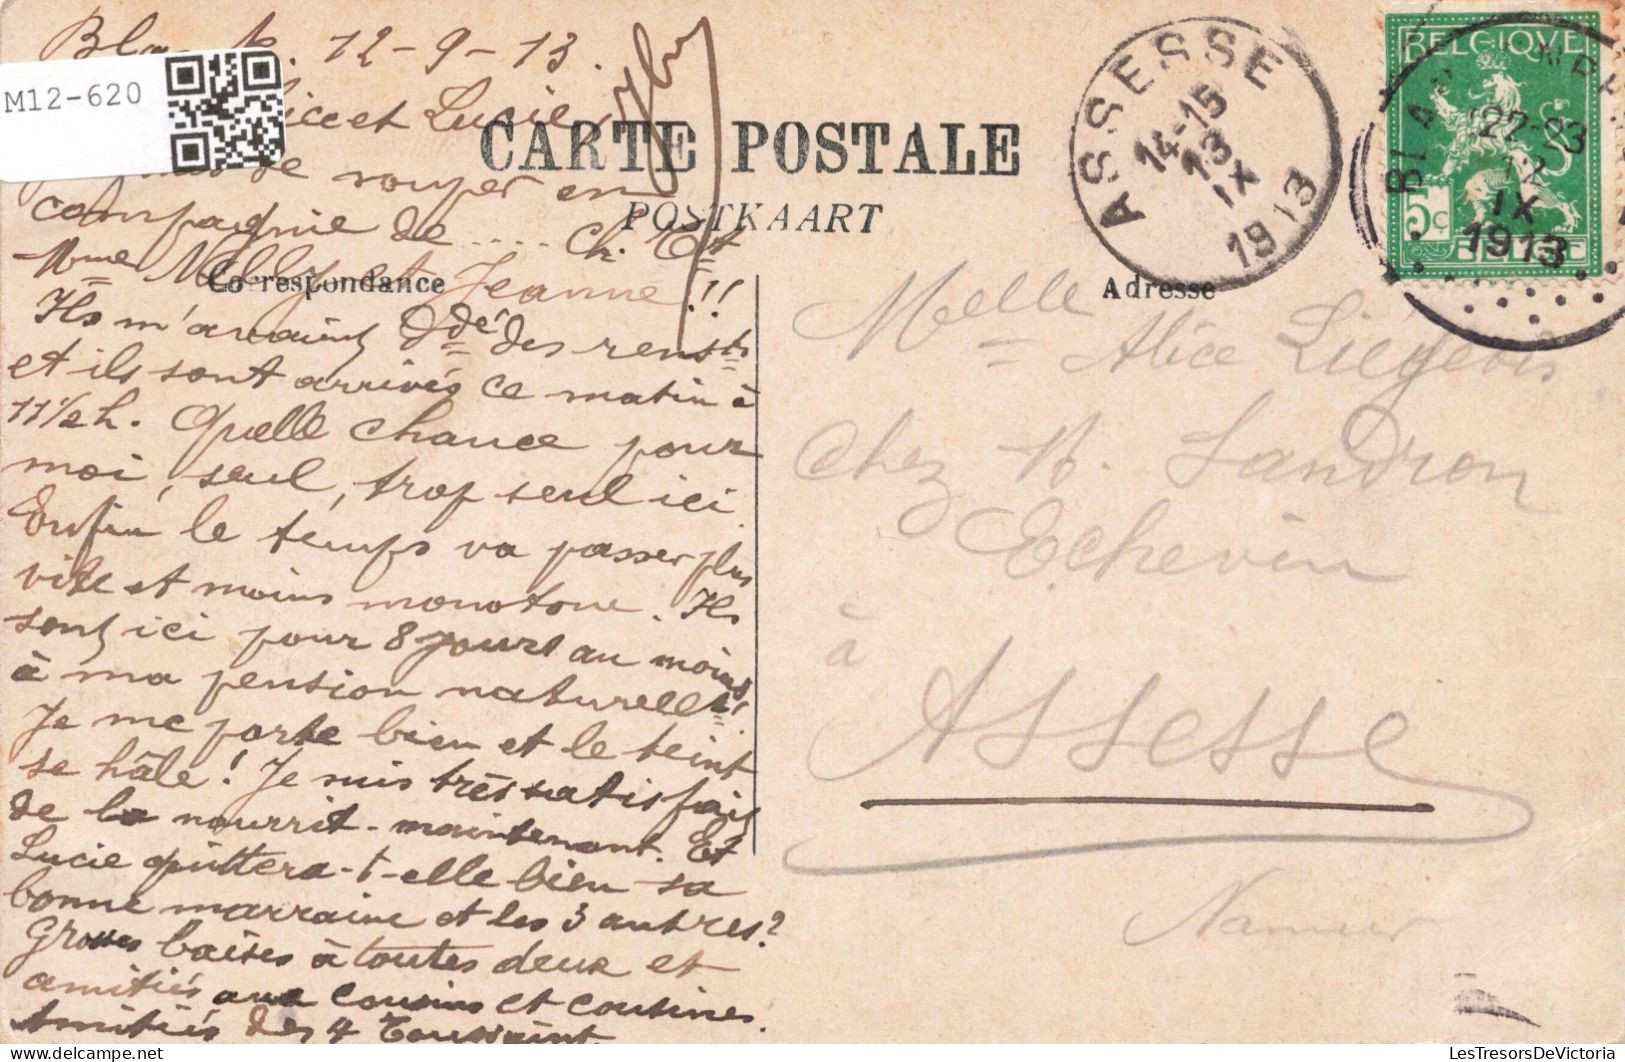 12-9-13.
M12-620
et Lucie,
CARTE POSTALE
POSTKAART
Correspondance
Adresse
de souper en
compagnie de .... Ch. Et
Mme Nelly et Jeanne!!
Ils m'avaient ddé des renssts
et ils sont arrivés ce matin à
11 1/2 h. Quelle chance pour
moi, seul, trop seul ici.
Enfin le temps va passer plus
vite et moins monotone. Ils
sont ici pour 8 jours au moins
à ma pension naturellt.
Je me porte bien et le teint
se hâle! Je suis très satisfait
de la nourrit. maintenant. Et
Lucie quittera-t-elle bien sa
bonne marraine et les 3 autres?
Grosses baises à toutes deux et
amitiés aux cousins et cousines.
Amitiés des 4 Toussaint.
Melle Alice Liégeois
Chez N. Landron
Echevin
à
Assesse
Namur
ASSESSE
14-15
13
IX
1913
BELGIQUE
5c
22-23
12
IX
1913
LesTresorsDeVictoria